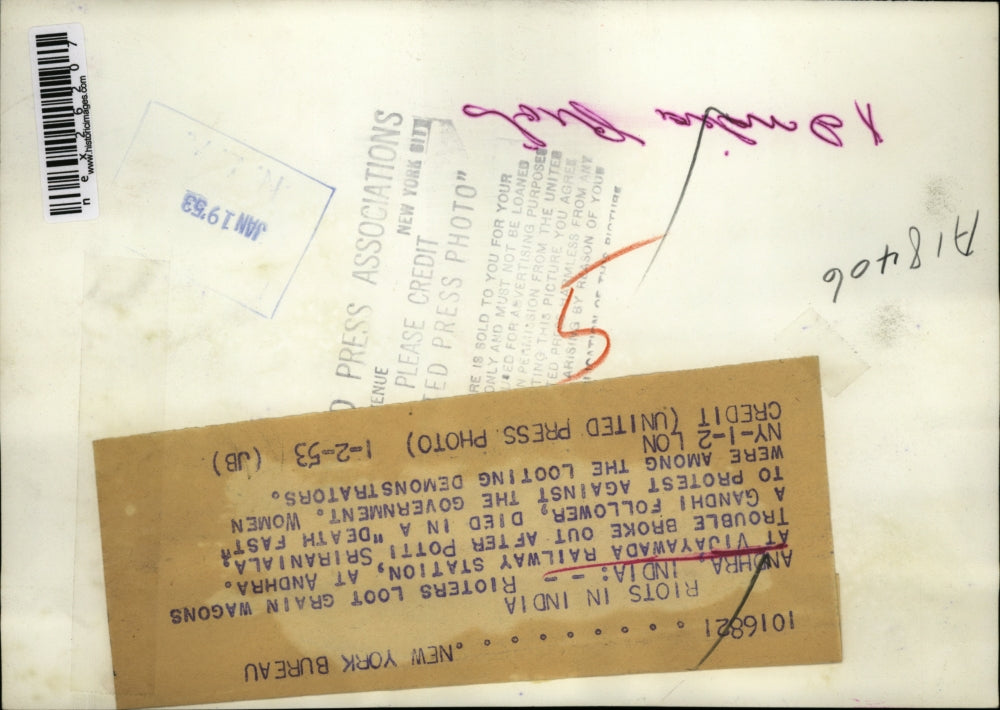 nex22620
www.historicimages.com
JAN 19 '53
PRESS ASSOCIATIONS
ENUE NEW YORK CITY
PLEASE CREDIT
TED PRESS PHOTO"
RE IS SOLD TO YOU FOR YOUR
ONLY AND MUST NOT BE LOANED
USED FOR ADVERTISING PURPOSES
N PERMISSION FROM THE UNITED
TING THIS PICTURE YOU AGREE
ED PRESS HARMLESS FROM ANY
ARISING BY REASON OF YOUR
ICATION OF THIS PICTURE
5
A18406
1016821 . . . . . . . . .NEW YORK BUREAU
RIOTS IN INDIA
ANDHRA, INDIA: -- RIOTERS LOOT GRAIN WAGONS
AT VIJAYAWADA RAILWAY STATION, AT ANDHRA.
TROUBLE BROKE OUT AFTER POTTI SRIRANIALA,
A GANDHI FOLLOWER, DIED IN A "DEATH FAST"
TO PROTEST AGAINST THE GOVERNMENT. WOMEN
WERE AMONG THE LOOTING DEMONSTRATORS.
NY-1-2 LON
CREDIT (UNITED PRESS PHOTO) 1-2-53 (JB)